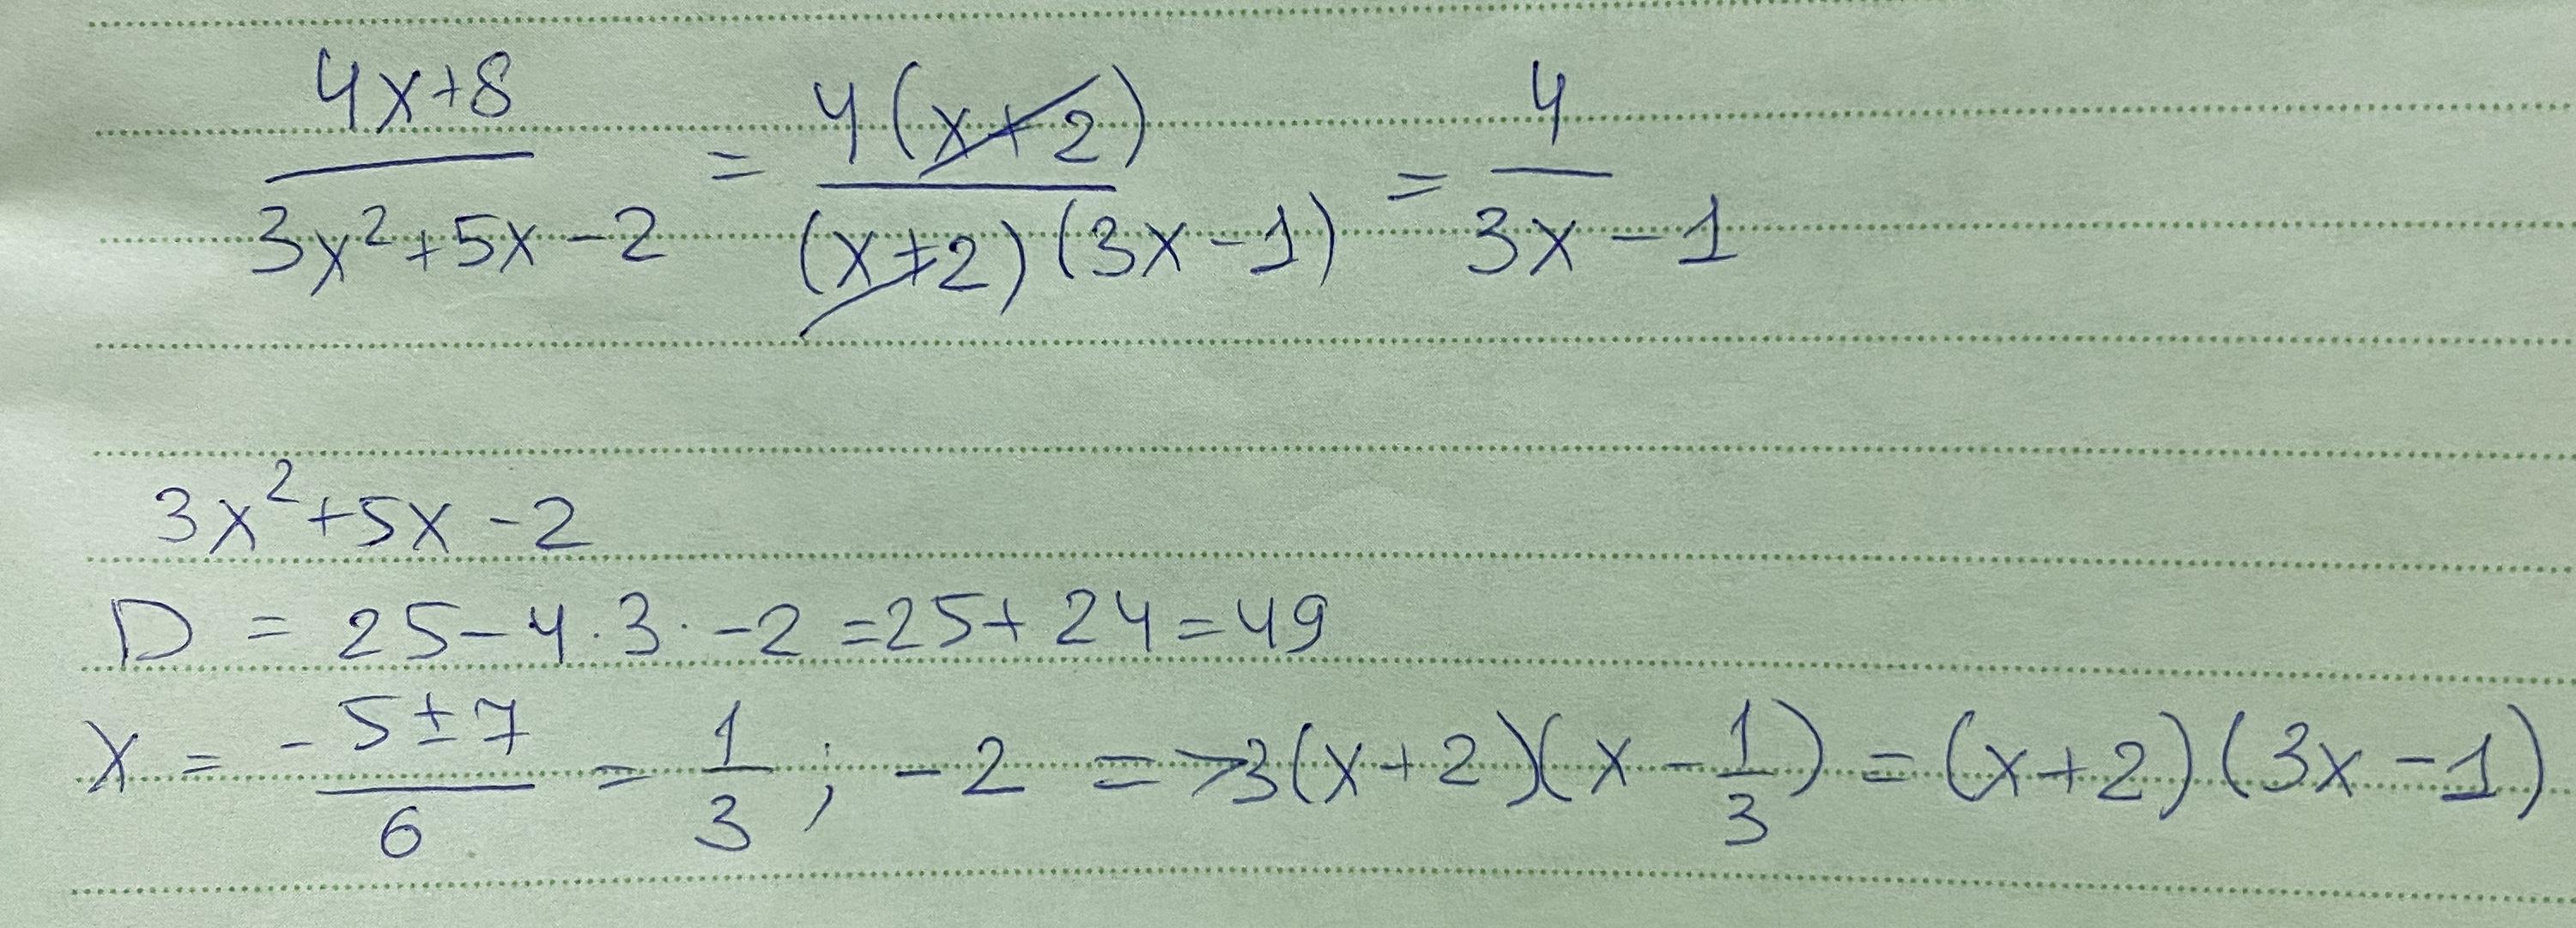 4x+8/3x²+5x-2 = 4(x+2)/(x+2)(3x-1) = 4/3x-1
3x²+5x-2
D = 25-4·3·-2=25+24=49
x = -5±7/6 = 1/3; -2 => 3(x+2)(x-1/3) = (x+2)(3x-1)